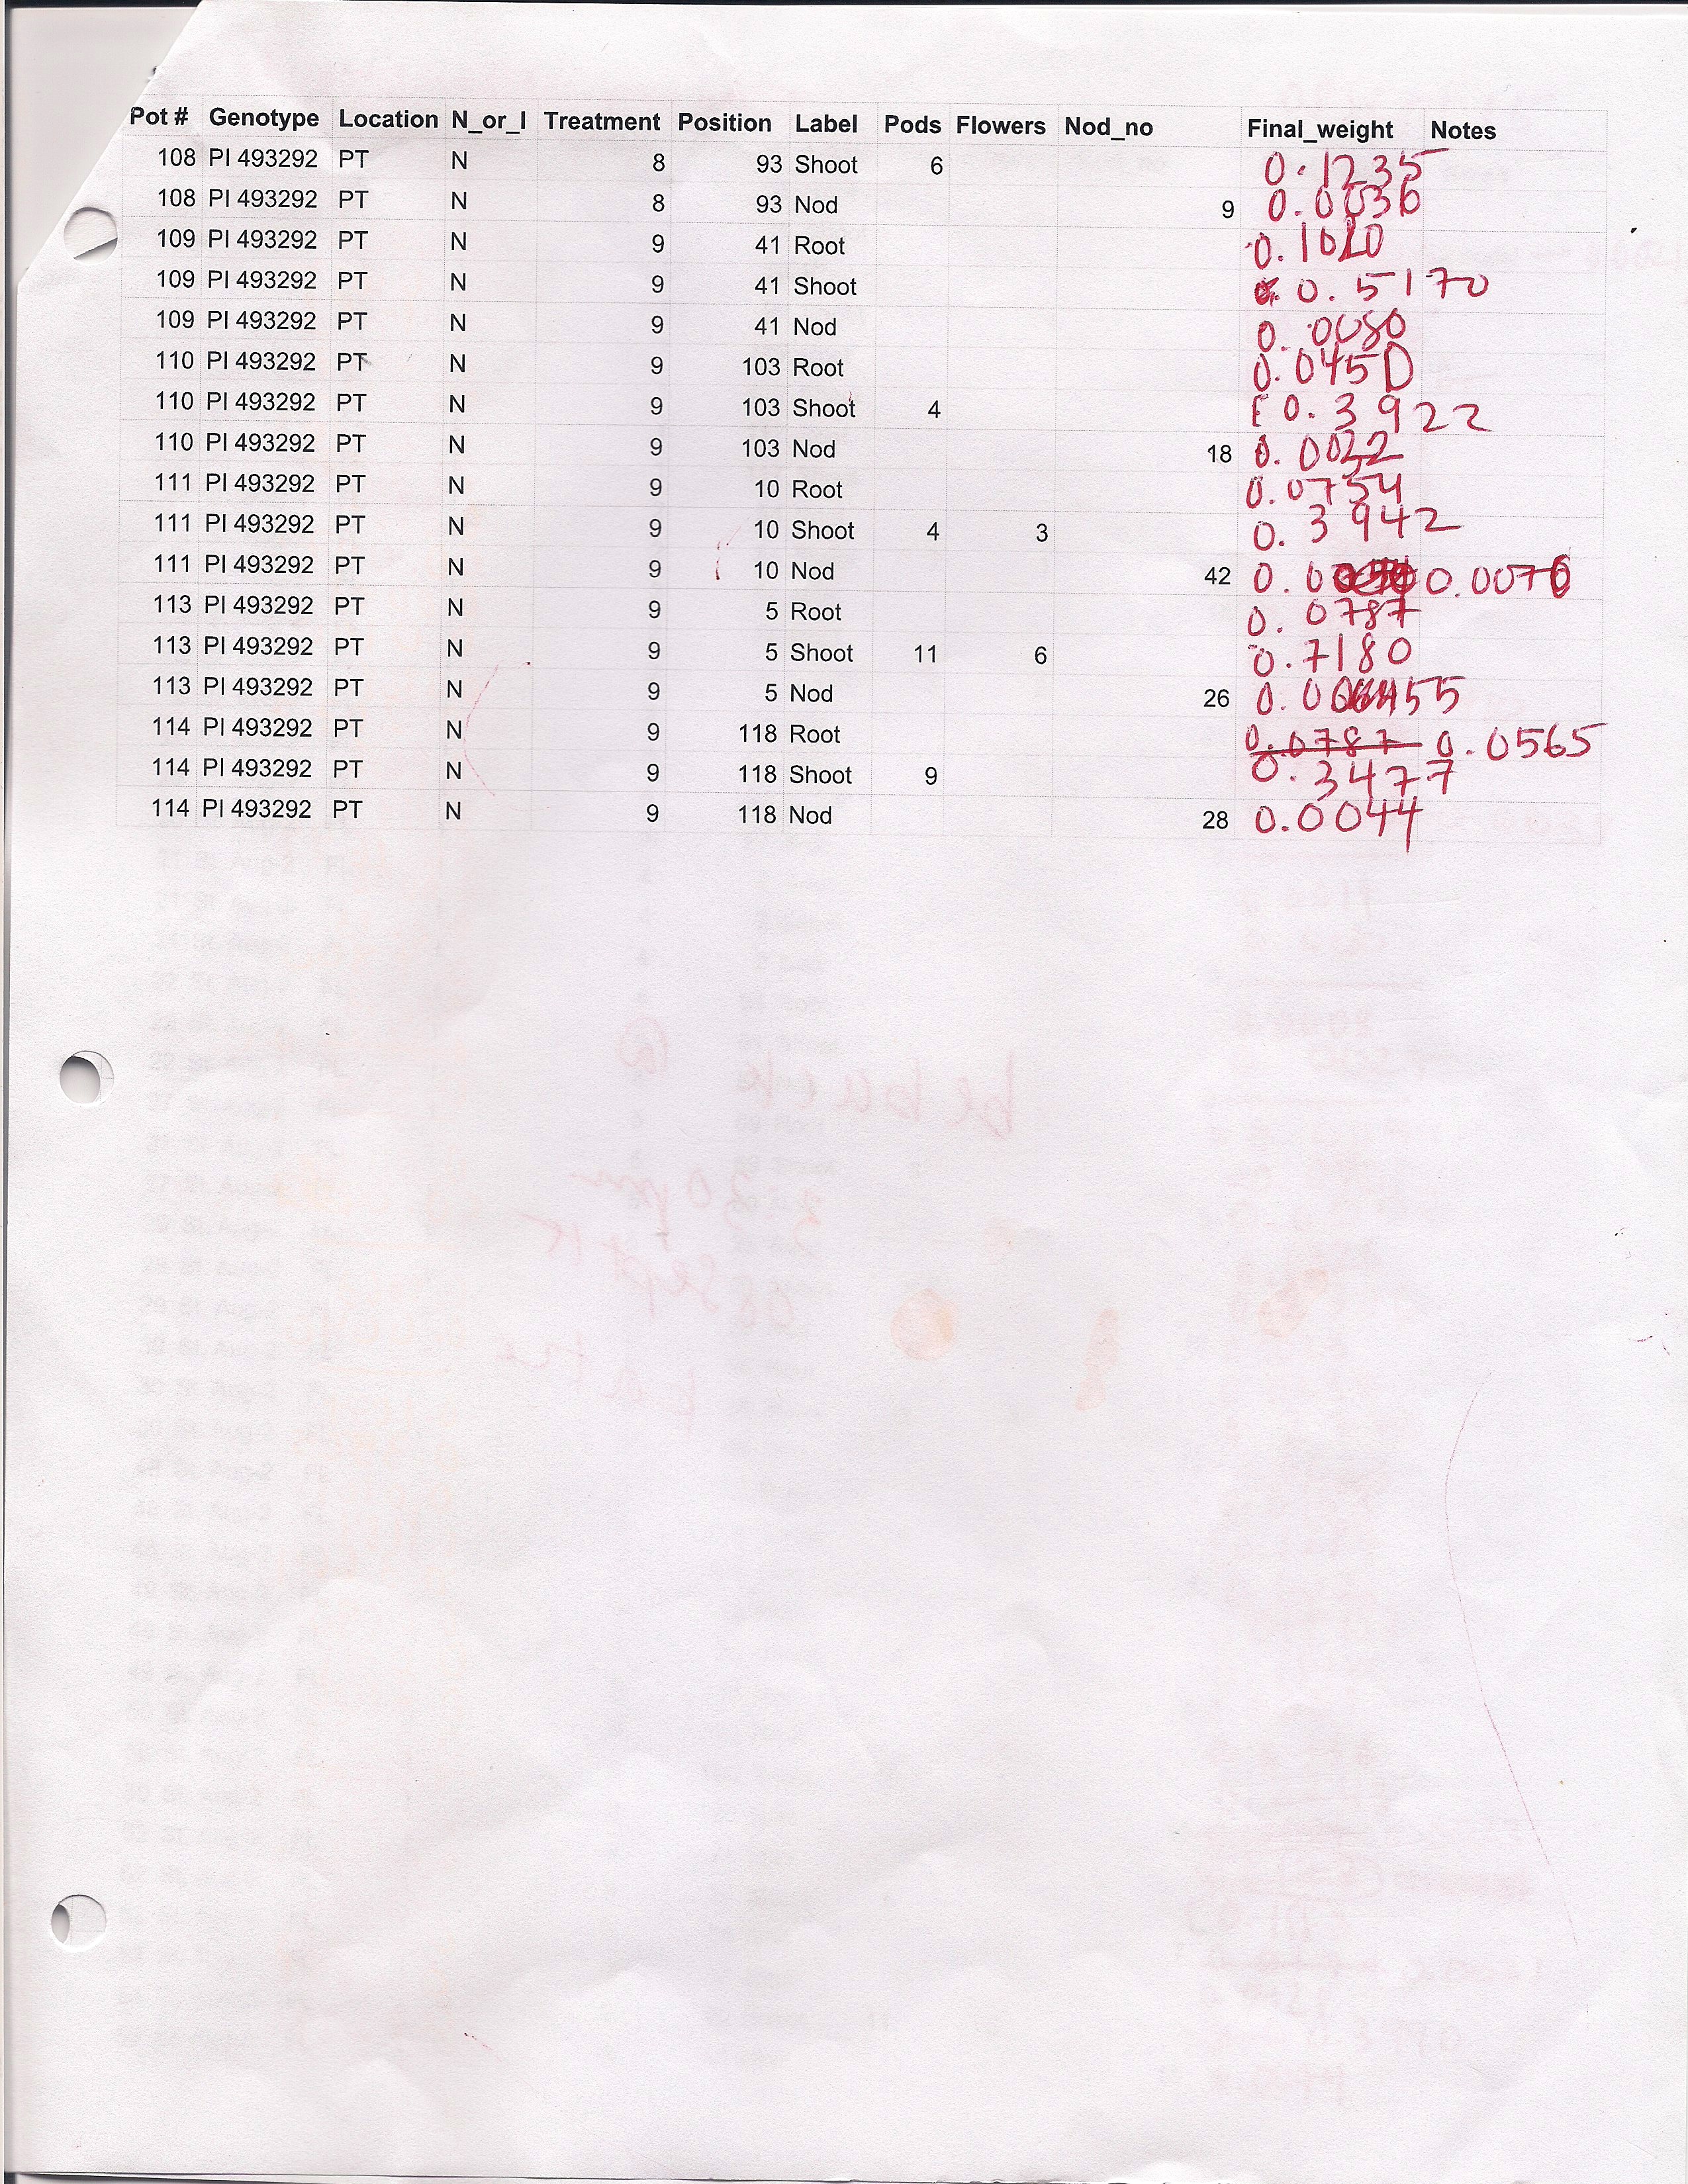 Pot # Genotype Location N_or_I Treatment Position Label Pods Flowers Nod_no Final_weight Notes
108 PI 493292 PT N 8 93 Shoot 6 0.1235
108 PI 493292 PT N 8 93 Nod 9 0.0036
109 PI 493292 PT N 9 41 Root 0.1010
109 PI 493292 PT N 9 41 Shoot 0.5170
109 PI 493292 PT N 9 41 Nod 0.0080
110 PI 493292 PT N 9 103 Root 0.0450
110 PI 493292 PT N 9 103 Shoot 4 0.3922
110 PI 493292 PT N 9 103 Nod 18 0.0022
111 PI 493292 PT N 9 10 Root 0.0754
111 PI 493292 PT N 9 10 Shoot 4 3 0.3942
111 PI 493292 PT N 9 10 Nod 42 0.0070
113 PI 493292 PT N 9 5 Root 0.0787
113 PI 493292 PT N 9 5 Shoot 11 6 0.7180
113 PI 493292 PT N 9 5 Nod 26
114 PI 493292 PT N 9 118 Root 0.0787 0.0565
114 PI 493292 PT N 9 118 Shoot 9 0.3477
114 PI 493292 PT N 9 118 Nod 28 0.0044